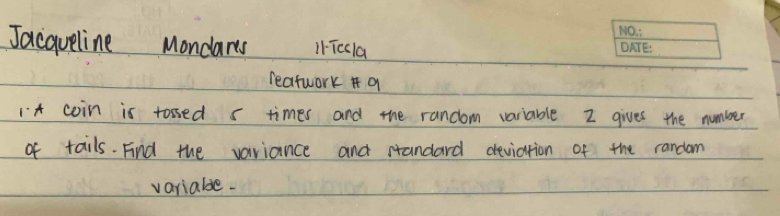 Jacqueline Mondares 11-Tesla
NO.:
DATE:
Seatwork # 9
1. A coin is tossed 5 times and the random variable Z gives the number
of tails. Find the variance and standard deviation of the random
variable.